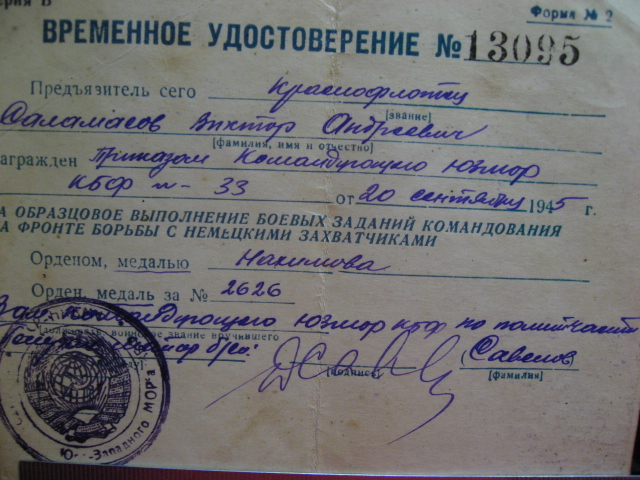 ерия В
Форма № 2
ВРЕМЕННОЕ УДОСТОВЕРЕНИЕ № 13095
Предъязитель сего Краснофлотец
[звание]
Саламасов Виктор Андреевич
[фамилия, имя и отчество]
награжден Приказом Командующего Югзмор
КБФ № - 33 от 20 сентября 1945 г.
А ОБРАЗЦОВОЕ ВЫПОЛНЕНИЕ БОЕВЫХ ЗАДАНИЙ КОМАНДОВАНИЯ
А ФРОНТЕ БОРЬБЫ С НЕМЕЦКИМИ ЗАХВАТЧИКАМИ
Орденом, медалью Нахимова
Орден, медаль за № 2626
Зам. Командующего Югзмор КБФ по политчасти
воинское звание вручившего
майор б/с: (Савелов)
[подпись] [фамилия]
Юго-Западного МОР'а